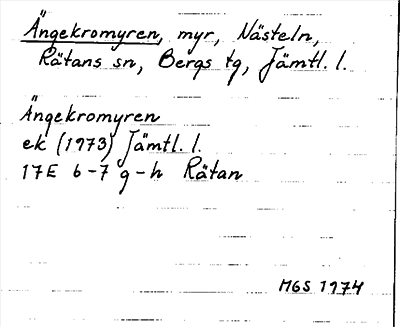 Ängekromyren, myr, Nästeln,
Rätans sn, Bergs tg, Jämtl. l.
Ängekromyren
ek (1973) Jämtl. l.
17E 6-7 g-h Rätan
MGS 1974